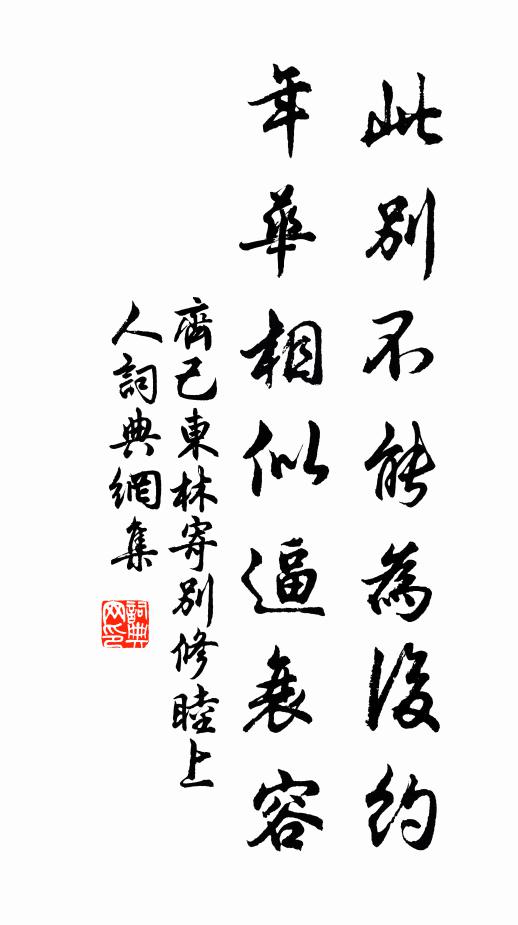 此別不能為後約
年華相似逼衰容
齊己東林寄別修睦上
人詞典網集
詞典
网印